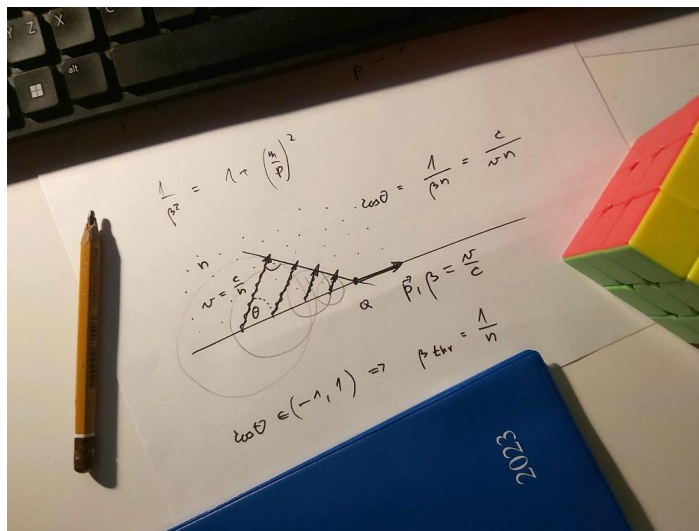 Y Z X
alt
1/β² = 1 + (m/p)²
cosθ = 1/βn = c/vn
n
v = c/n
θ
Q
p⃗, β = v/c
cosθ ∈ (-1, 1) => β thr = 1/n
2023